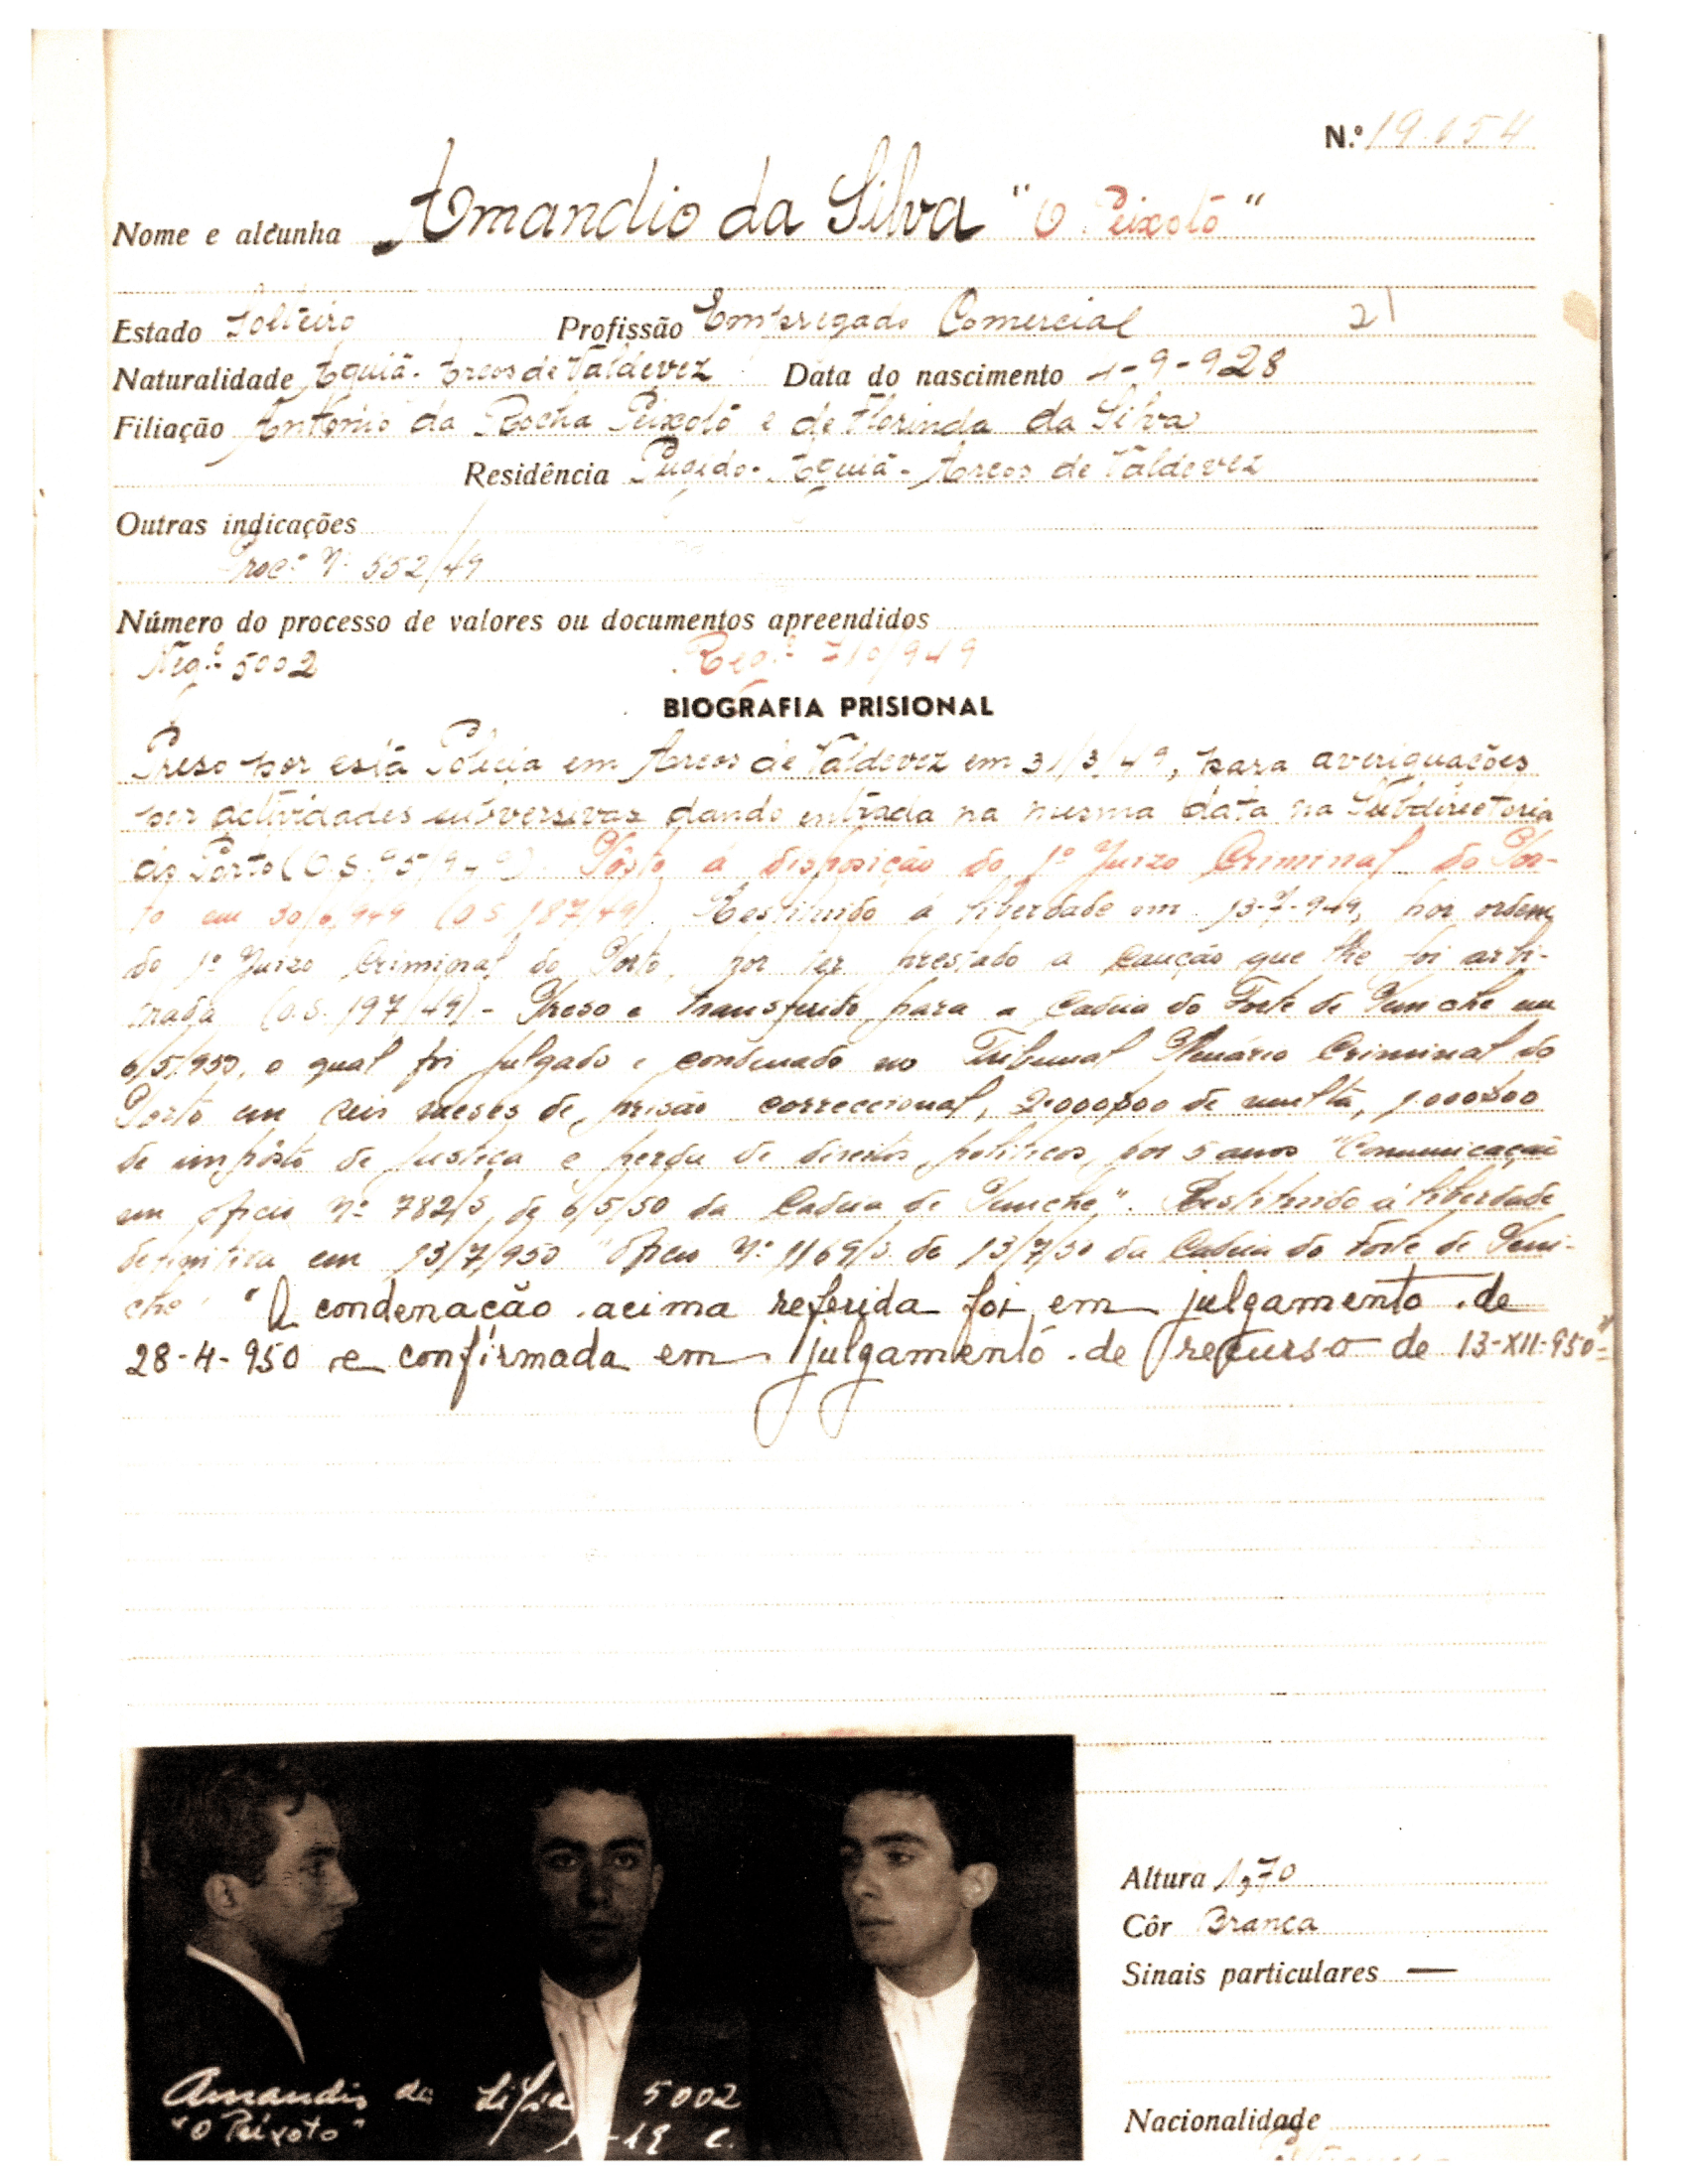 N.º 19.654
Nome e alcunha Amandio da Silva "O Peixoto"
Estado Solteiro Profissão Empregado Comercial 21
Naturalidade Aguiã - Arcos de Valdevez Data do nascimento 1-9-928
Filiação António da Rocha Peixoto e de Florinda da Silva
Residência Aguiã - Arcos de Valdevez
Outras indicações
Proc.º N.º 552/49
Número do processo de valores ou documentos apreendidos
Neg.º 5002 Reg.º 710/949
BIOGRAFIA PRISIONAL
Preso por esta Policia em Arcos de Valdevez em 31/3/49, para averiguações
por actividades subversivas dando entrada na mesma data na Subdirectoria
do Porto (O.S. 95/949). Pôsto á disposição do 1º Juizo Criminal do Por-
to em 30/6/949 (O.S. 187/49). Restituido á liberdade em 13-7-949, por ordem
do 1º Juizo Criminal do Porto, por ter prestado a caução que lhe foi arbi-
trada (O.S. 197/49) - Preso e transferido para a Cadeia do Forte de Peniche em
6/5/950, o qual foi julgado e condenado no Tribunal Plenário Criminal do
Porto em seis meses de prisão correccional, 2.000$00 de multa, 1.000$00
de impôsto de justiça e perda de direitos politicos, por 5 anos "Comunicação
em oficio Nº 782/S, de 6/5/50 da Cadeia de Peniche". Restituido á liberdade
definitiva em 13/7/950 "Oficio Nº 1169/S. de 13/7/50 da Cadeia do Forte de Peni-
che" "A condenação acima referida foi em julgamento de
28-4-950 e confirmada em julgamento de recurso de 13-XII-950"=
Altura 1,70
Côr Branca
Sinais particulares —
Amandio da Silva 5002
"O Peixoto" C.
Nacionalidade